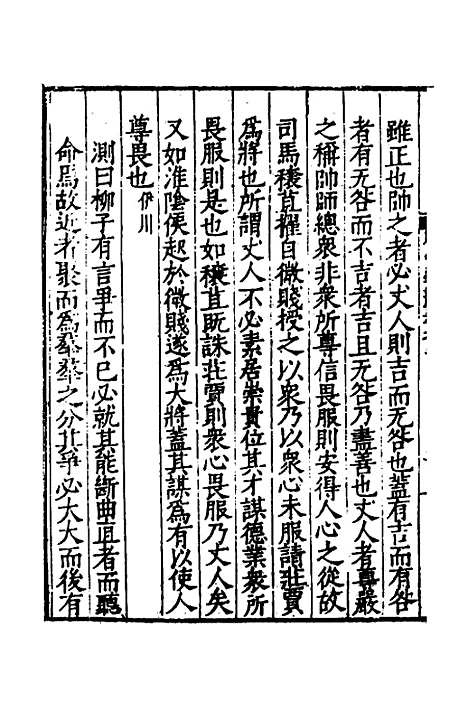 雖正也帥之者必丈人則吉而无咎也蓋有吉而有咎
者有无咎而不吉者吉且无咎乃盡善也丈人者尊嚴
之稱帥師總衆非衆所尊信畏服則安得人心之從故
司馬穰苴擢自微賤授之以衆乃以衆心未服請莊賈
爲將也所謂丈人不必素居崇貴位其才謀德業衆所
畏服則是也如穰苴既誅莊賈則衆心畏服乃丈人矣
又如淮陰侯起於微賤遂爲大將蓋其謀爲有以使人
尊畏也伊川
測曰柳子有言爭而不已必就其能斷曲直者而聽
命焉故近者聚而爲羣羣之分其爭必大大而後有